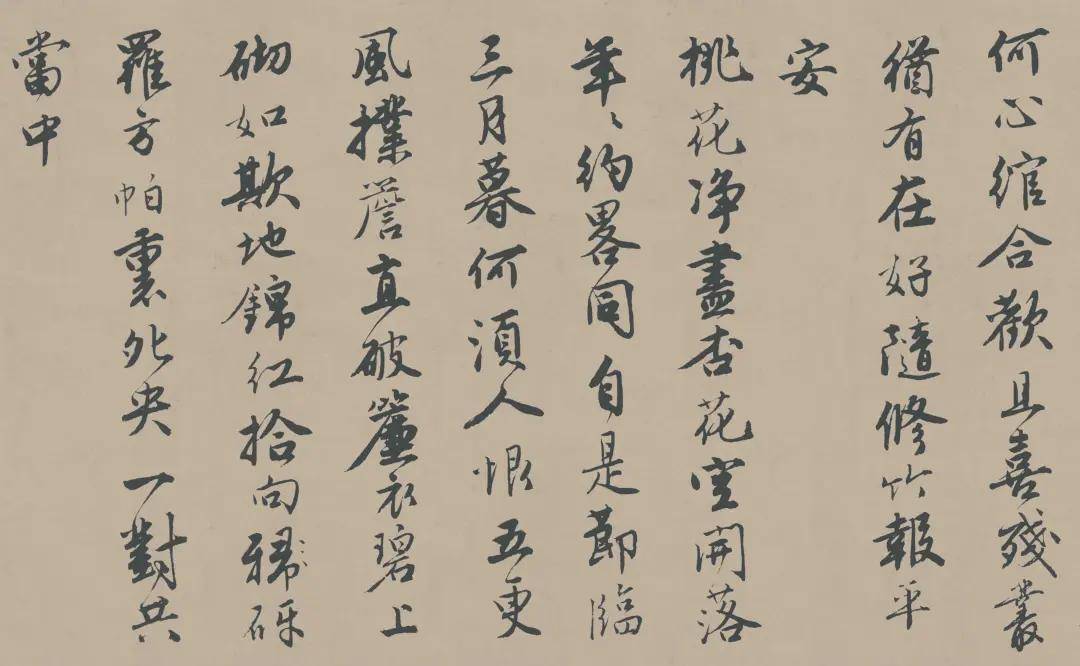 何心綰合歡且喜殘叢
猶有在好隨修竹報平
安
桃花净盡杏花空開落
年々約畧同自是莭臨
三月暮何須人恨五更
風撲簷直破簾衣碧上
砌如欺地錦紅拾向砑
羅方帕裏夗央一對共
當中